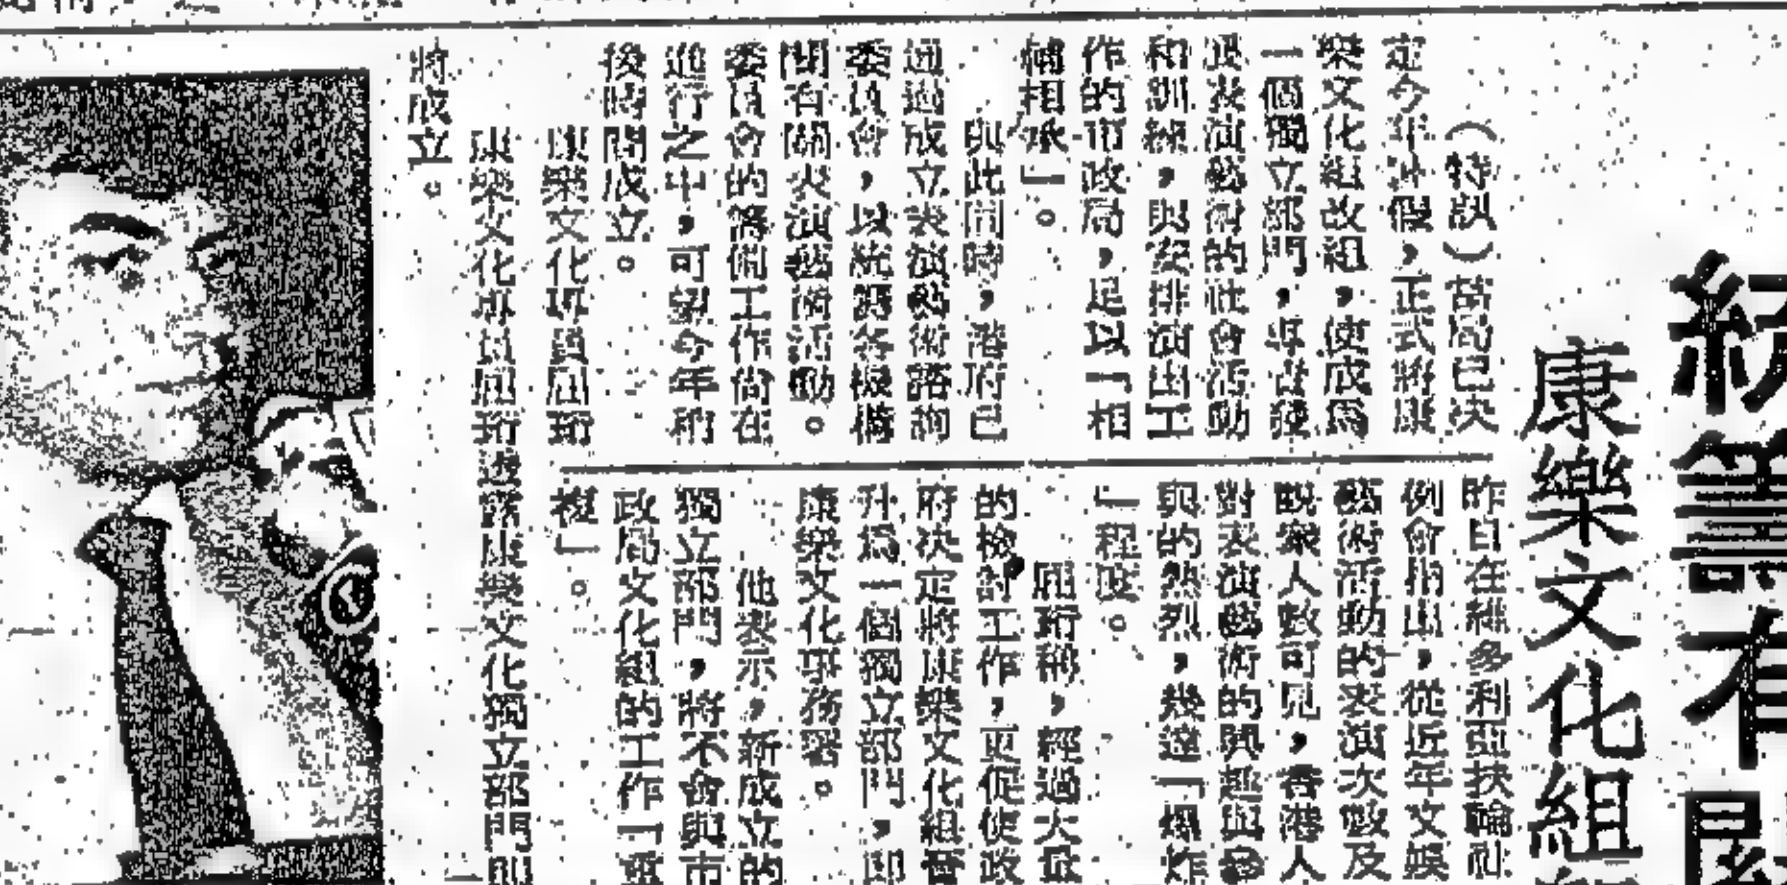 統籌有關
康樂文化組
（特訊）當局已決
定今年暑假，正式將康
樂文化組改組，使成爲
一個獨立部門，專責發
展表演藝術的社會活動
和訓練，與安排演出工
作的市政局，足以「相
輔相承」。
與此同時，港府已
通過成立表演藝術諮詢
委員會，以統籌各機構
間有關表演藝術活動。
委員會的籌備工作尚在
進行之中，可望今年稍
後時間成立。
康樂文化專員屈珩
昨日在維多利亞扶輪社
例會指出，從近年文娛
藝術活動的表演次數及
觀衆人數可見，香港人
對表演藝術的興趣與參
與的熱烈，幾達「爆炸
」程度。
屈珩稱，經過大量
的檢討工作，更促使政
府決定將康樂文化組晋
升爲一個獨立部門，即
康樂文化事務署。
他表示，新成立的
獨立部門，將不會與市
政局文化組的工作「重
複」。
康樂文化專員屈珩透露康樂文化獨立部門即
將成立。